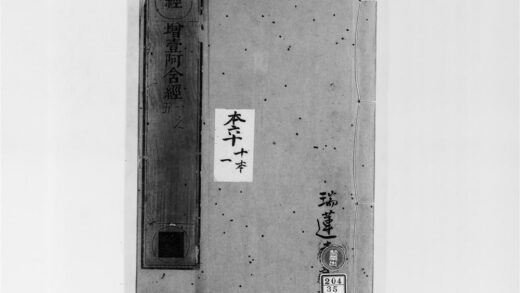 經
增壹阿含經
本六十
十本
一
瑞蓮
204
35